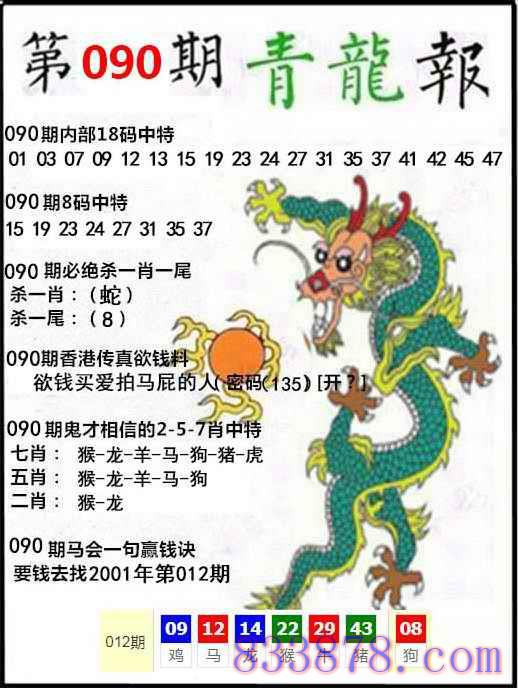 第090期青龍報
090期内部18码中特
01 03 07 09 12 13 15 19 23 24 27 31 35 37 41 42 45 47
090期8码中特
15 19 23 24 27 31 35 37
090 期必绝杀一肖一尾
杀一肖：（蛇）
杀一尾：（8）
090期香港传真欲钱料
欲钱买爱拍马屁的人(密码(135)[开？]
090期鬼才相信的2-5-7肖中特
七肖： 猴-龙-羊-马-狗-猪-虎
五肖： 猴-龙-羊-马-狗
二肖： 猴-龙
090 期马会一句赢钱诀
要钱去找2001年第012期
012期 09 12 14 22 29 43 08
鸡 马 龙 猴 牛 猪 狗
833878.com